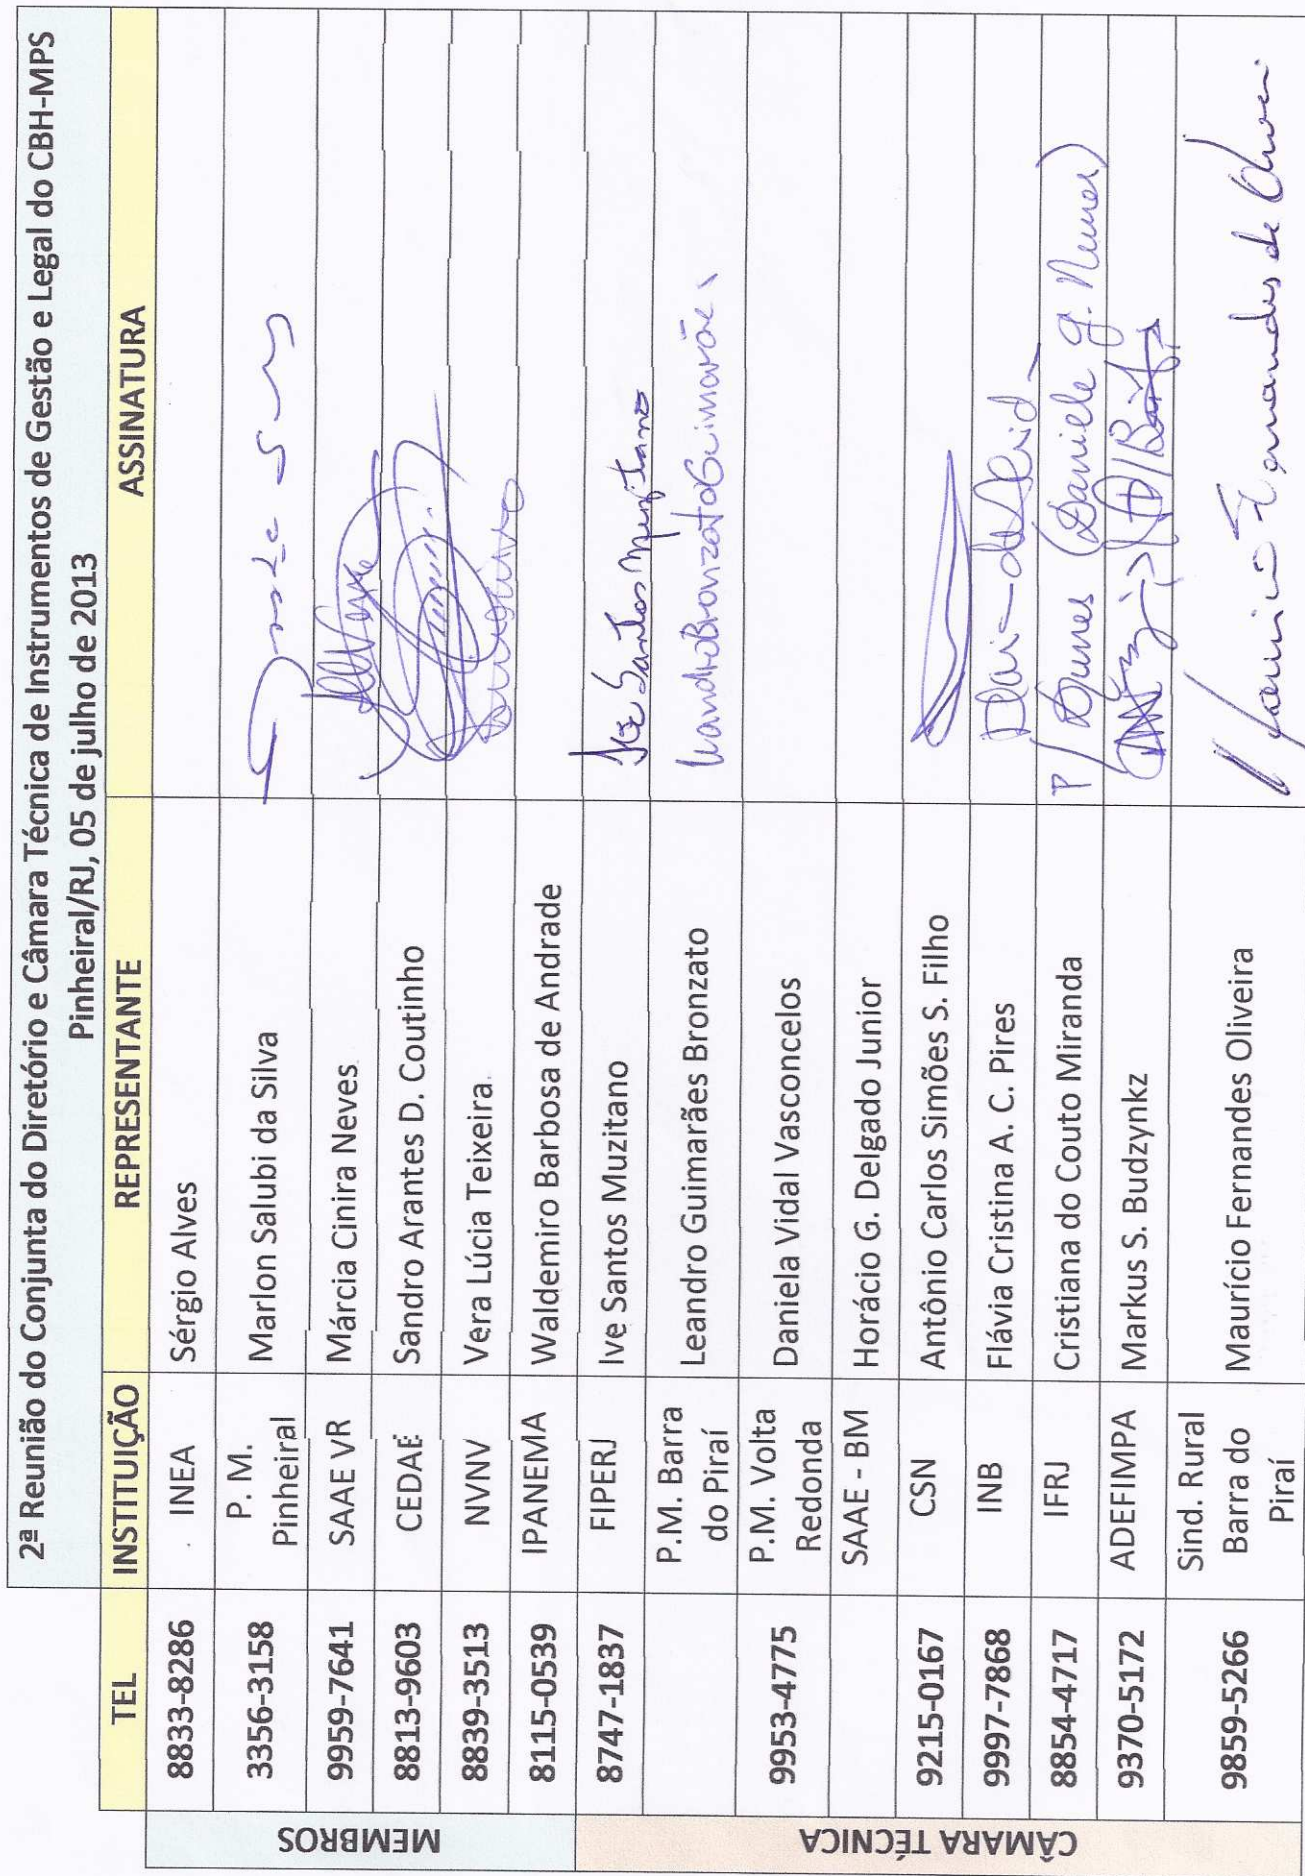 2ª Reunião do Conjunta do Diretório e Câmara Técnica de Instrumentos de Gestão e Legal do CBH-MPS
Pinheiral/RJ, 05 de julho de 2013
TEL INSTITUIÇÃO REPRESENTANTE ASSINATURA
MEMBROS
8833-8286 INEA Sérgio Alves
3356-3158 P. M. Pinheiral Marlon Salubi da Silva
9959-7641 SAAE VR Márcia Cinira Neves
8813-9603 CEDAE Sandro Arantes D. Coutinho
8839-3513 NVNV Vera Lúcia Teixeira
8115-0539 IPANEMA Waldemiro Barbosa de Andrade
CÂMARA TÉCNICA
8747-1837 FIPERJ Ive Santos Muzitano Ive Santos Muzitano
P.M. Barra do Piraí Leandro Guimarães Bronzato Leandro Bronzato Guimarães
9953-4775 P.M. Volta Redonda Daniela Vidal Vasconcelos
SAAE - BM Horácio G. Delgado Junior
9215-0167 CSN Antônio Carlos Simões S. Filho
9997-7868 INB Flávia Cristina A. C. Pires
8854-4717 IFRJ Cristiana do Couto Miranda P/ Dunes (Daniele G. Nunes)
9370-5172 ADEFIMPA Markus S. Budzynkz
9859-5266 Sind. Rural Barra do Piraí Maurício Fernandes Oliveira Maurício Fernandes de Oliveira